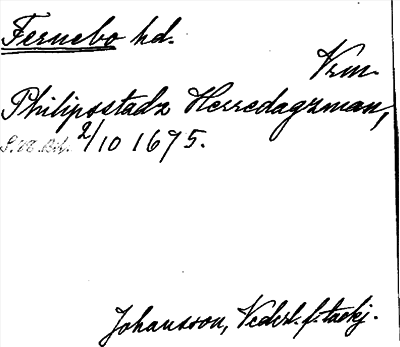 Fernebo hd.
Vrm.
Philipsstadz Herredagzman,
2/10 1675.
Johansson, Nederl. f. taekj.